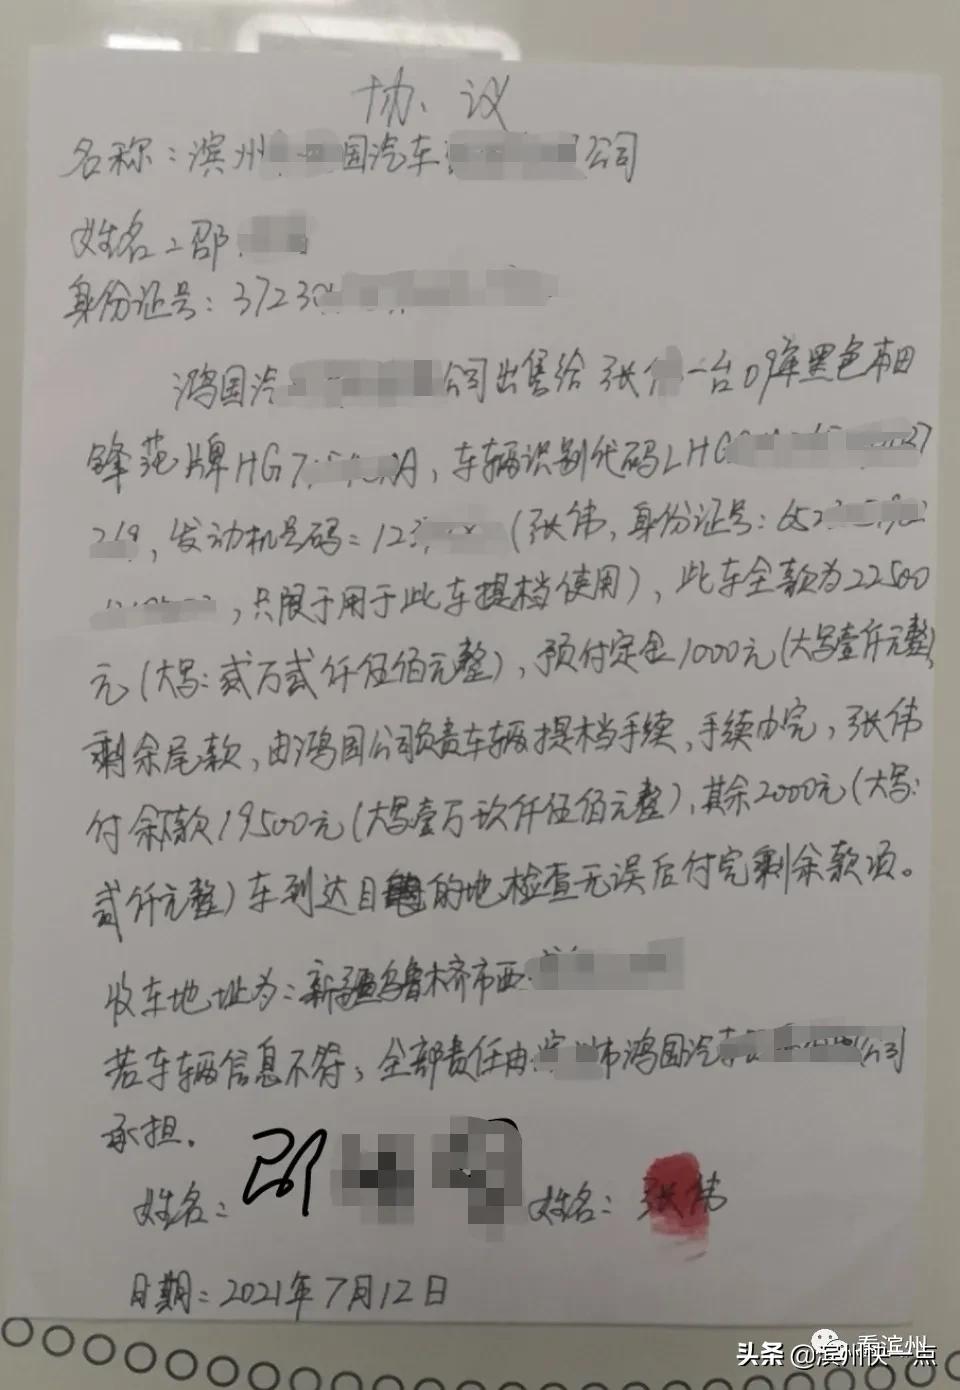 协议
名称：滨州 国汽车 公司
姓名：邵
身份证号：3723
鸿国汽 公司出售给张 一台09年黑色本田
锋范牌HG7 A，车辆识别代码LHG 27
219，发动机号码：123 （张伟，身份证号：652
，只限于用于此车提档使用），此车全款为22500
元（大写：贰万贰仟伍佰元整），预付定金1000元（大写壹仟元整），
剩余尾款，由鸿国公司负责车辆提档手续，手续办完，张伟
付余款19500元（大写壹万玖仟伍佰元整），其余2000元（大写：
贰仟元整）车到达目的地检查无误后付完剩余款项。
收车地址为：新疆乌鲁木齐市西
若车辆信息不符，全部责任由 市鸿国汽车 公司
承担。
姓名：邵 姓名：张伟
日期：2021年7月12日
看滨州
头条 @滨州快一点